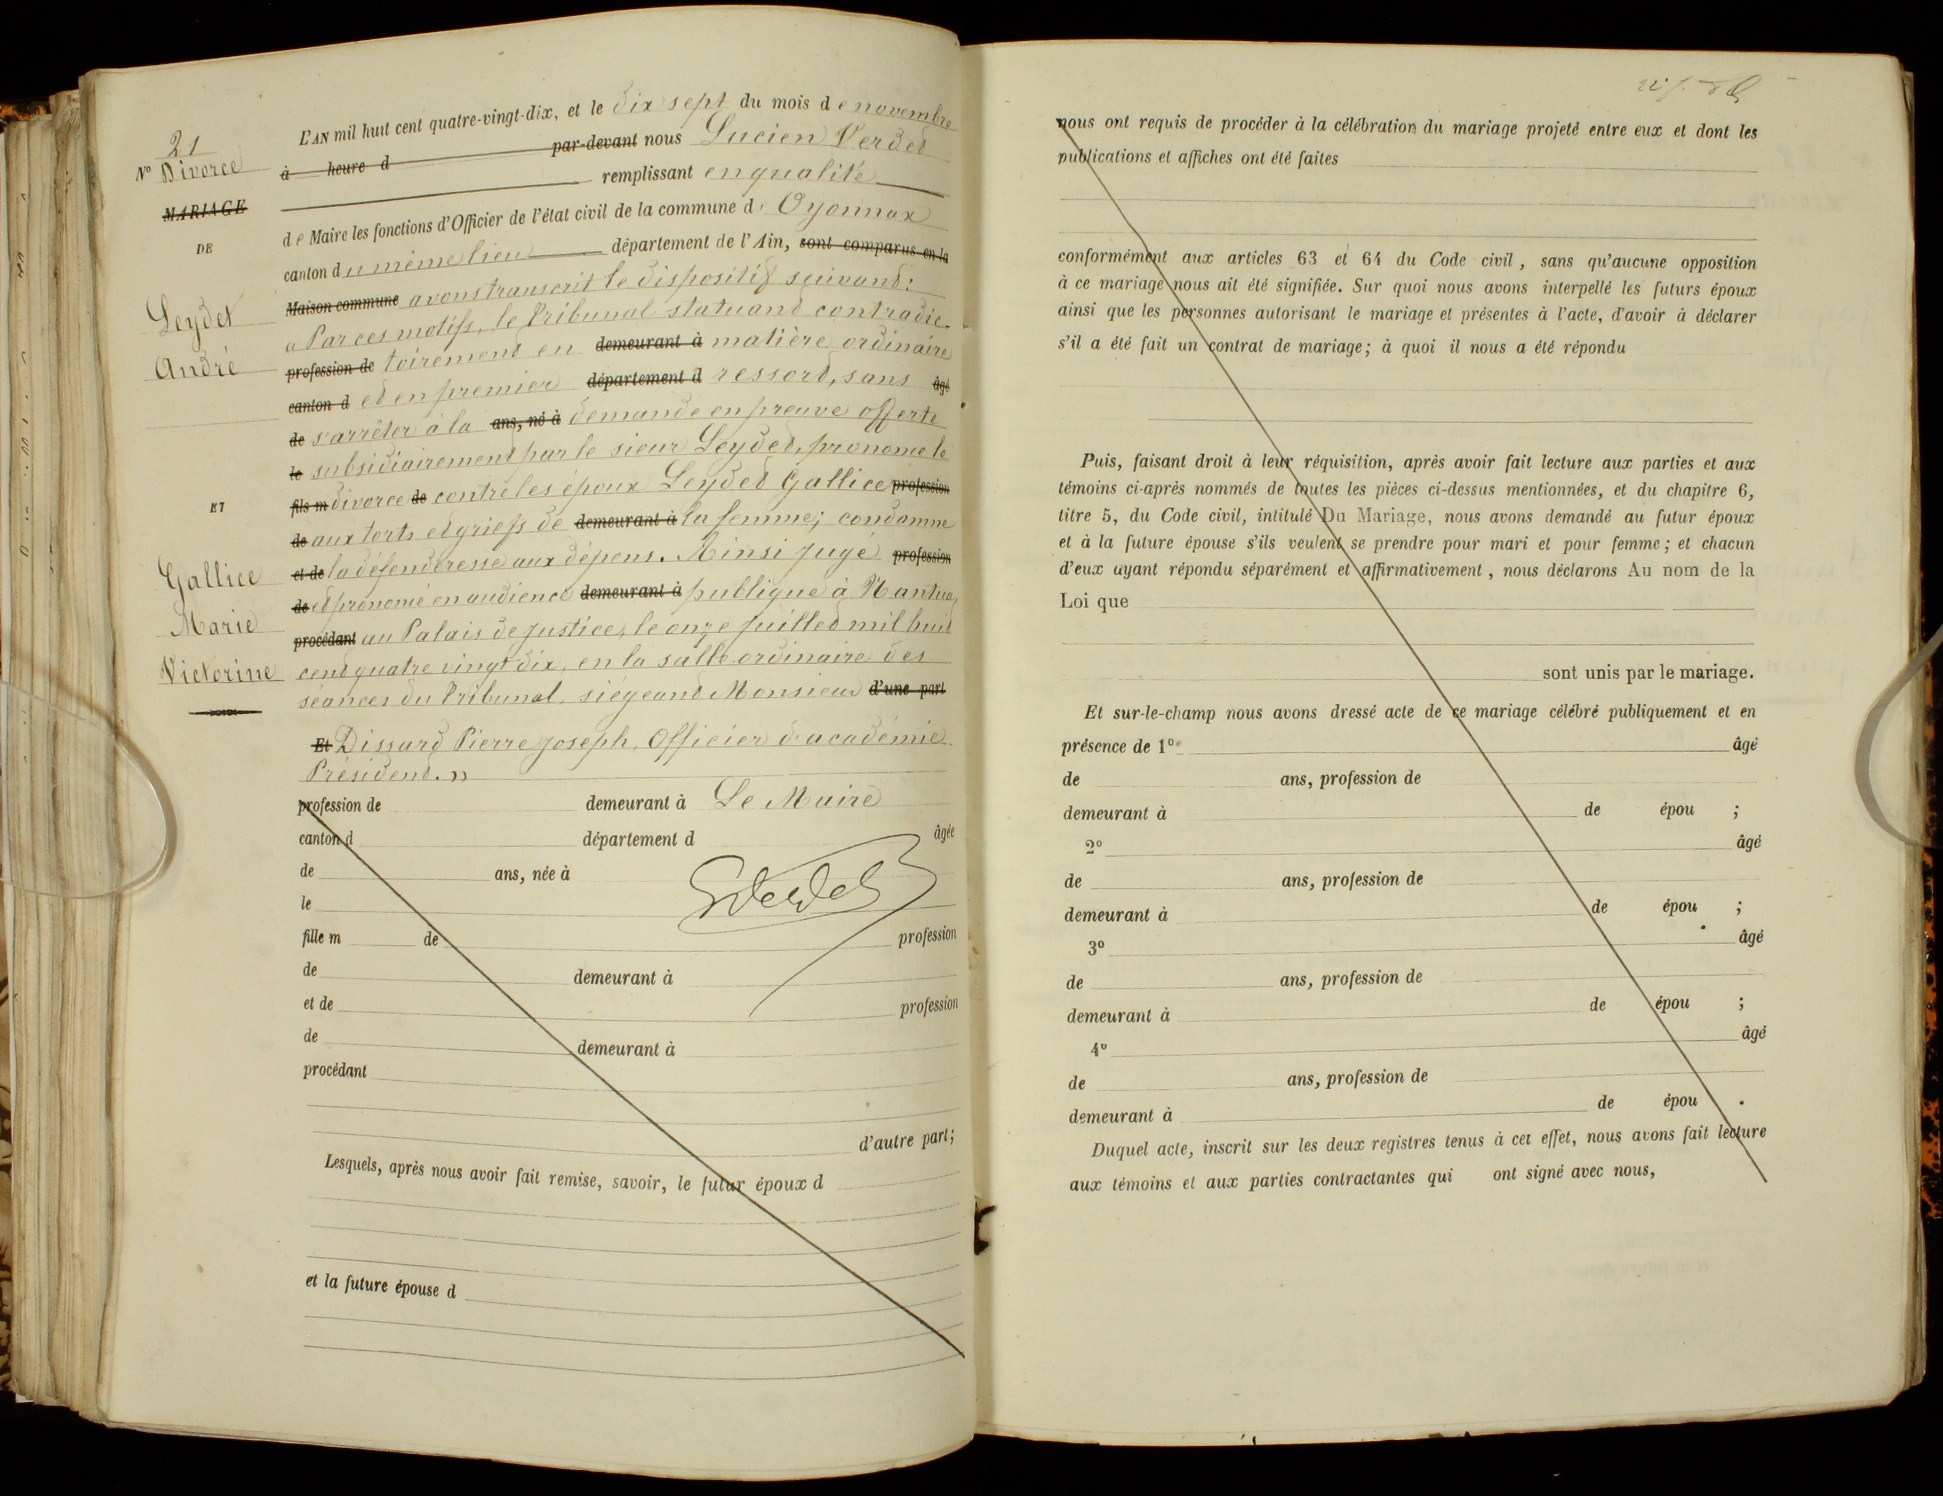 21
N° Divorce
MARIAGE
DE
Leydet
André
ET
Gallice
Marie
Victorine
L'AN mil huit cent quatre-vingt-dix, et le dix sept du mois de novembre
à heure d par-devant nous Lucien Verdet
remplissant en qualité
de Maire les fonctions d'Officier de l'état civil de la commune d' Oyonnax
canton du même lieu département de l'Ain, sont comparus en la
Maison commune avons transcrit le dispositif suivant:
« Par ces motifs, le Tribunal statuant contradic-
profession de toirement en demeurant à matière ordinaire
canton d et en premier département d ressort, sans âgé
de s'arrêter à la ans, né à demande en preuve offerte
le subsidiairement par le sieur Leydet, prononce le
fils m divorce de contre les époux Leydet Gallice profession
de aux torts et griefs de demeurant à la femme; condamne
et de la défenderesse aux dépens. Ainsi jugé profession
de et prononcé en audience demeurant à publique à Nantua,
procédant au Palais de justice, le onze juillet mil huit
cent quatre vingt dix, en la salle ordinaire des
séances du Tribunal, siégeant Monsieur d'une part
Et Dissard Pierre Joseph, Officier d'académie
Président. »
profession de demeurant à Le Maire
canton d département d âgée
de ans, née à
le Verdet
fille m de profession
de demeurant à
et de profession
de demeurant à
procédant
d'autre part;
Lesquels, après nous avoir fait remise, savoir, le futur époux d
et la future épouse d
nous ont requis de procéder à la célébration du mariage projeté entre eux et dont les
publications et affiches ont été faites
conformément aux articles 63 et 64 du Code civil, sans qu'aucune opposition
à ce mariage nous ait été signifiée. Sur quoi nous avons interpellé les futurs époux
ainsi que les personnes autorisant le mariage et présentes à l'acte, d'avoir à déclarer
s'il a été fait un contrat de mariage; à quoi il nous a été répondu
Puis, faisant droit à leur réquisition, après avoir fait lecture aux parties et aux
témoins ci-après nommés de toutes les pièces ci-dessus mentionnées, et du chapitre 6,
titre 5, du Code civil, intitulé Du Mariage, nous avons demandé au futur époux
et à la future épouse s'ils veulent se prendre pour mari et pour femme; et chacun
d'eux ayant répondu séparément et affirmativement, nous déclarons Au nom de la
Loi que
sont unis par le mariage.
Et sur-le-champ nous avons dressé acte de ce mariage célébré publiquement et en
présence de 1° âgé
de ans, profession de
demeurant à de épou ;
2° âgé
de ans, profession de
demeurant à de épou ;
3° âgé
de ans, profession de
demeurant à de épou ;
4° âgé
de ans, profession de
demeurant à de épou .
Duquel acte, inscrit sur les deux registres tenus à cet effet, nous avons fait lecture
aux témoins et aux parties contractantes qui ont signé avec nous,